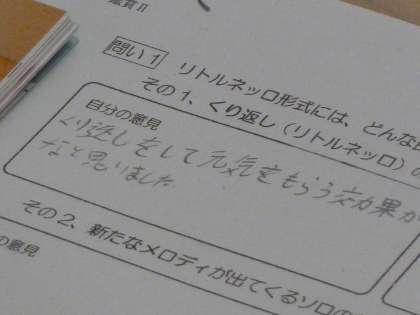 鑑賞Ⅱ
問い1 リトルネッロ形式には、どんな
その1、くり返し(リトルネッロ)の
自分の意見
くり返しをして元気をもらう効果が
なと思いました
その2、新たなメロディが出てくるソロの
の意見